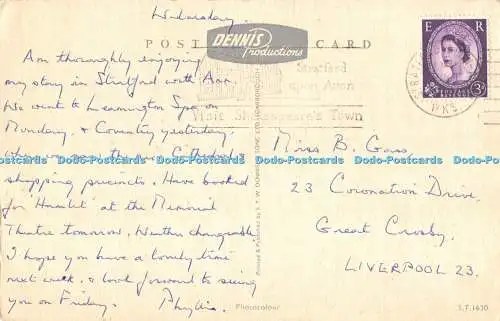 Wednesday.
POST CARD
DENNIS
Productions
E R
3D
Am thoroughly enjoying
my stay in Stratford with Ann.
We went to Leamington Spa on
Monday, & Coventry yesterday,
where we saw the new Cathedral &
shopping precincts. Have booked
for 'Hamlet' at the Memorial
Theatre tomorrow. Weather changeable.
I hope you have a lovely time
next week, & look forward to seeing
you on Friday. Phyllis.
Stratford
upon Avon
Visit Shakespeare's Town
Miss B. Gass
23 Coronation Drive,
Great Crosby,
LIVERPOOL 23.
Photocolour
S.T. 1630
Dodo-Postcards Dodo-Postcards Dodo-Postcards Dodo-Postcards Dodo-Postcards